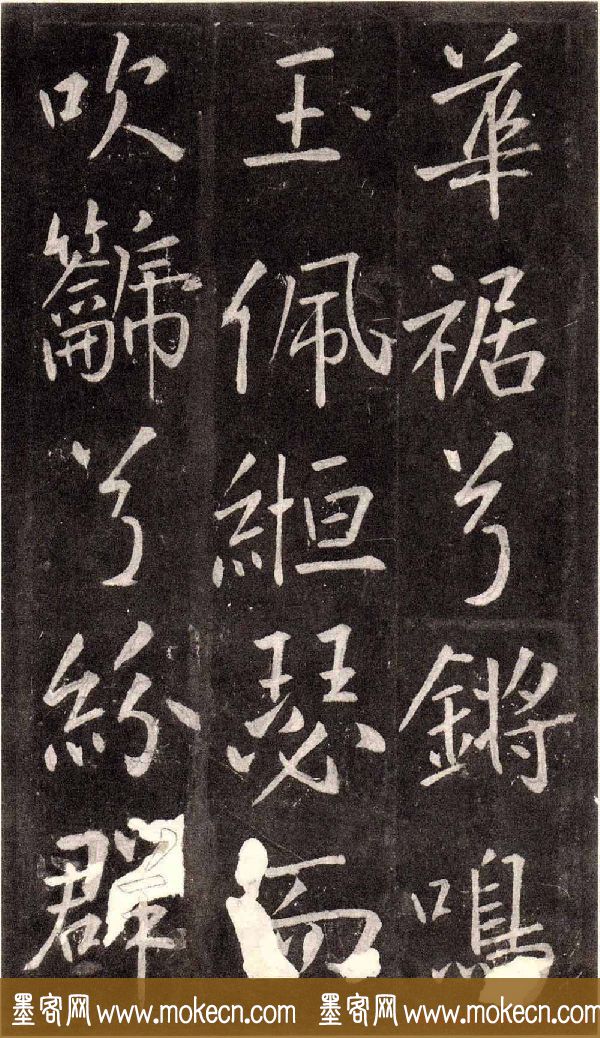 華裾兮鏘鳴
玉佩絙瑟而
吹龥兮紛群
墨客网 www.mokecn.com 墨客网 www.mokecn.com